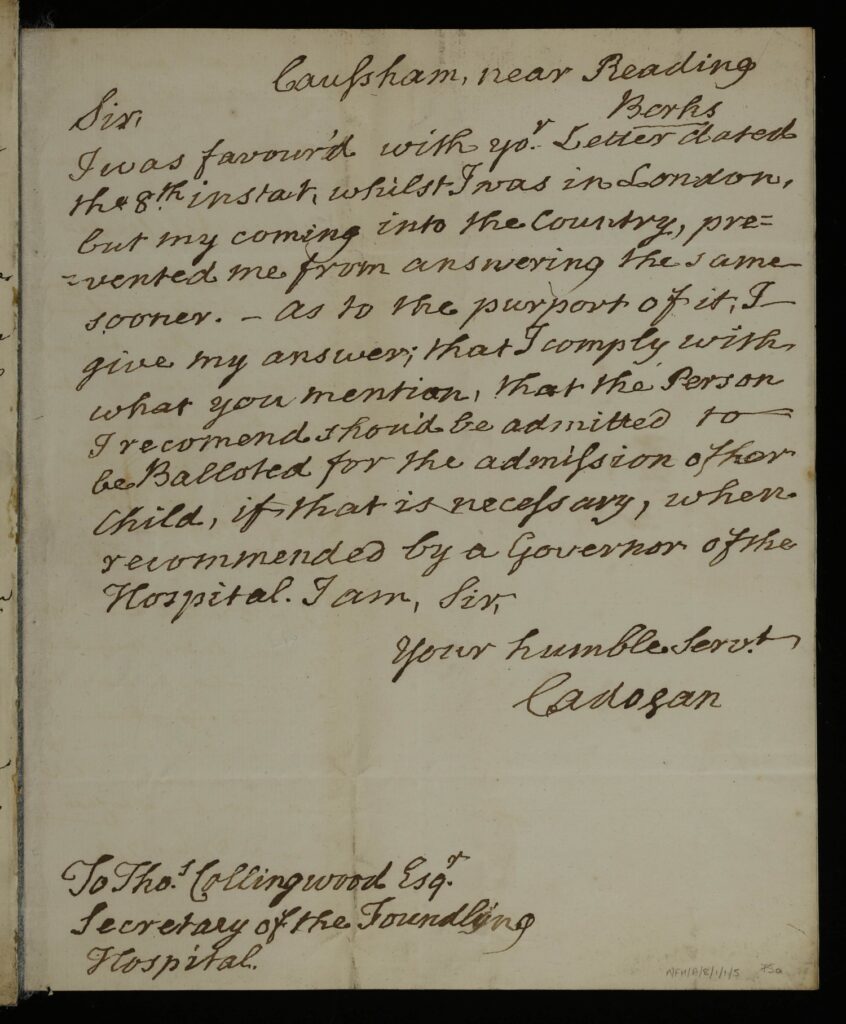 Cauſsham, near Reading
Berks
Sir,
I was favour'd with yo.r Letter dated
the 8th instat, whilst I was in London,
but my coming into the Country, pre=
=vented me from answering the same
sooner. – As to the purport of it, I
give my answer; that I comply with
what you mention, that the Person
I recomend shou'd be admitted to
be Balloted for the admiſsion of her
Child, if that is neceſsary, when
recommended by a Governor of the
Hospital. I am, Sir,
Your humble Serv.t
Cadogan
To Tho.s Collingwood Esq.r
Secretary of the Foundling
Hospital.
A/FH/A/6/1/1/5 75a